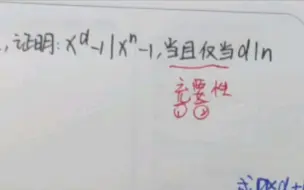 ,证明: x^d-1|x^n-1,当且仅当d|n
充要性
① ②